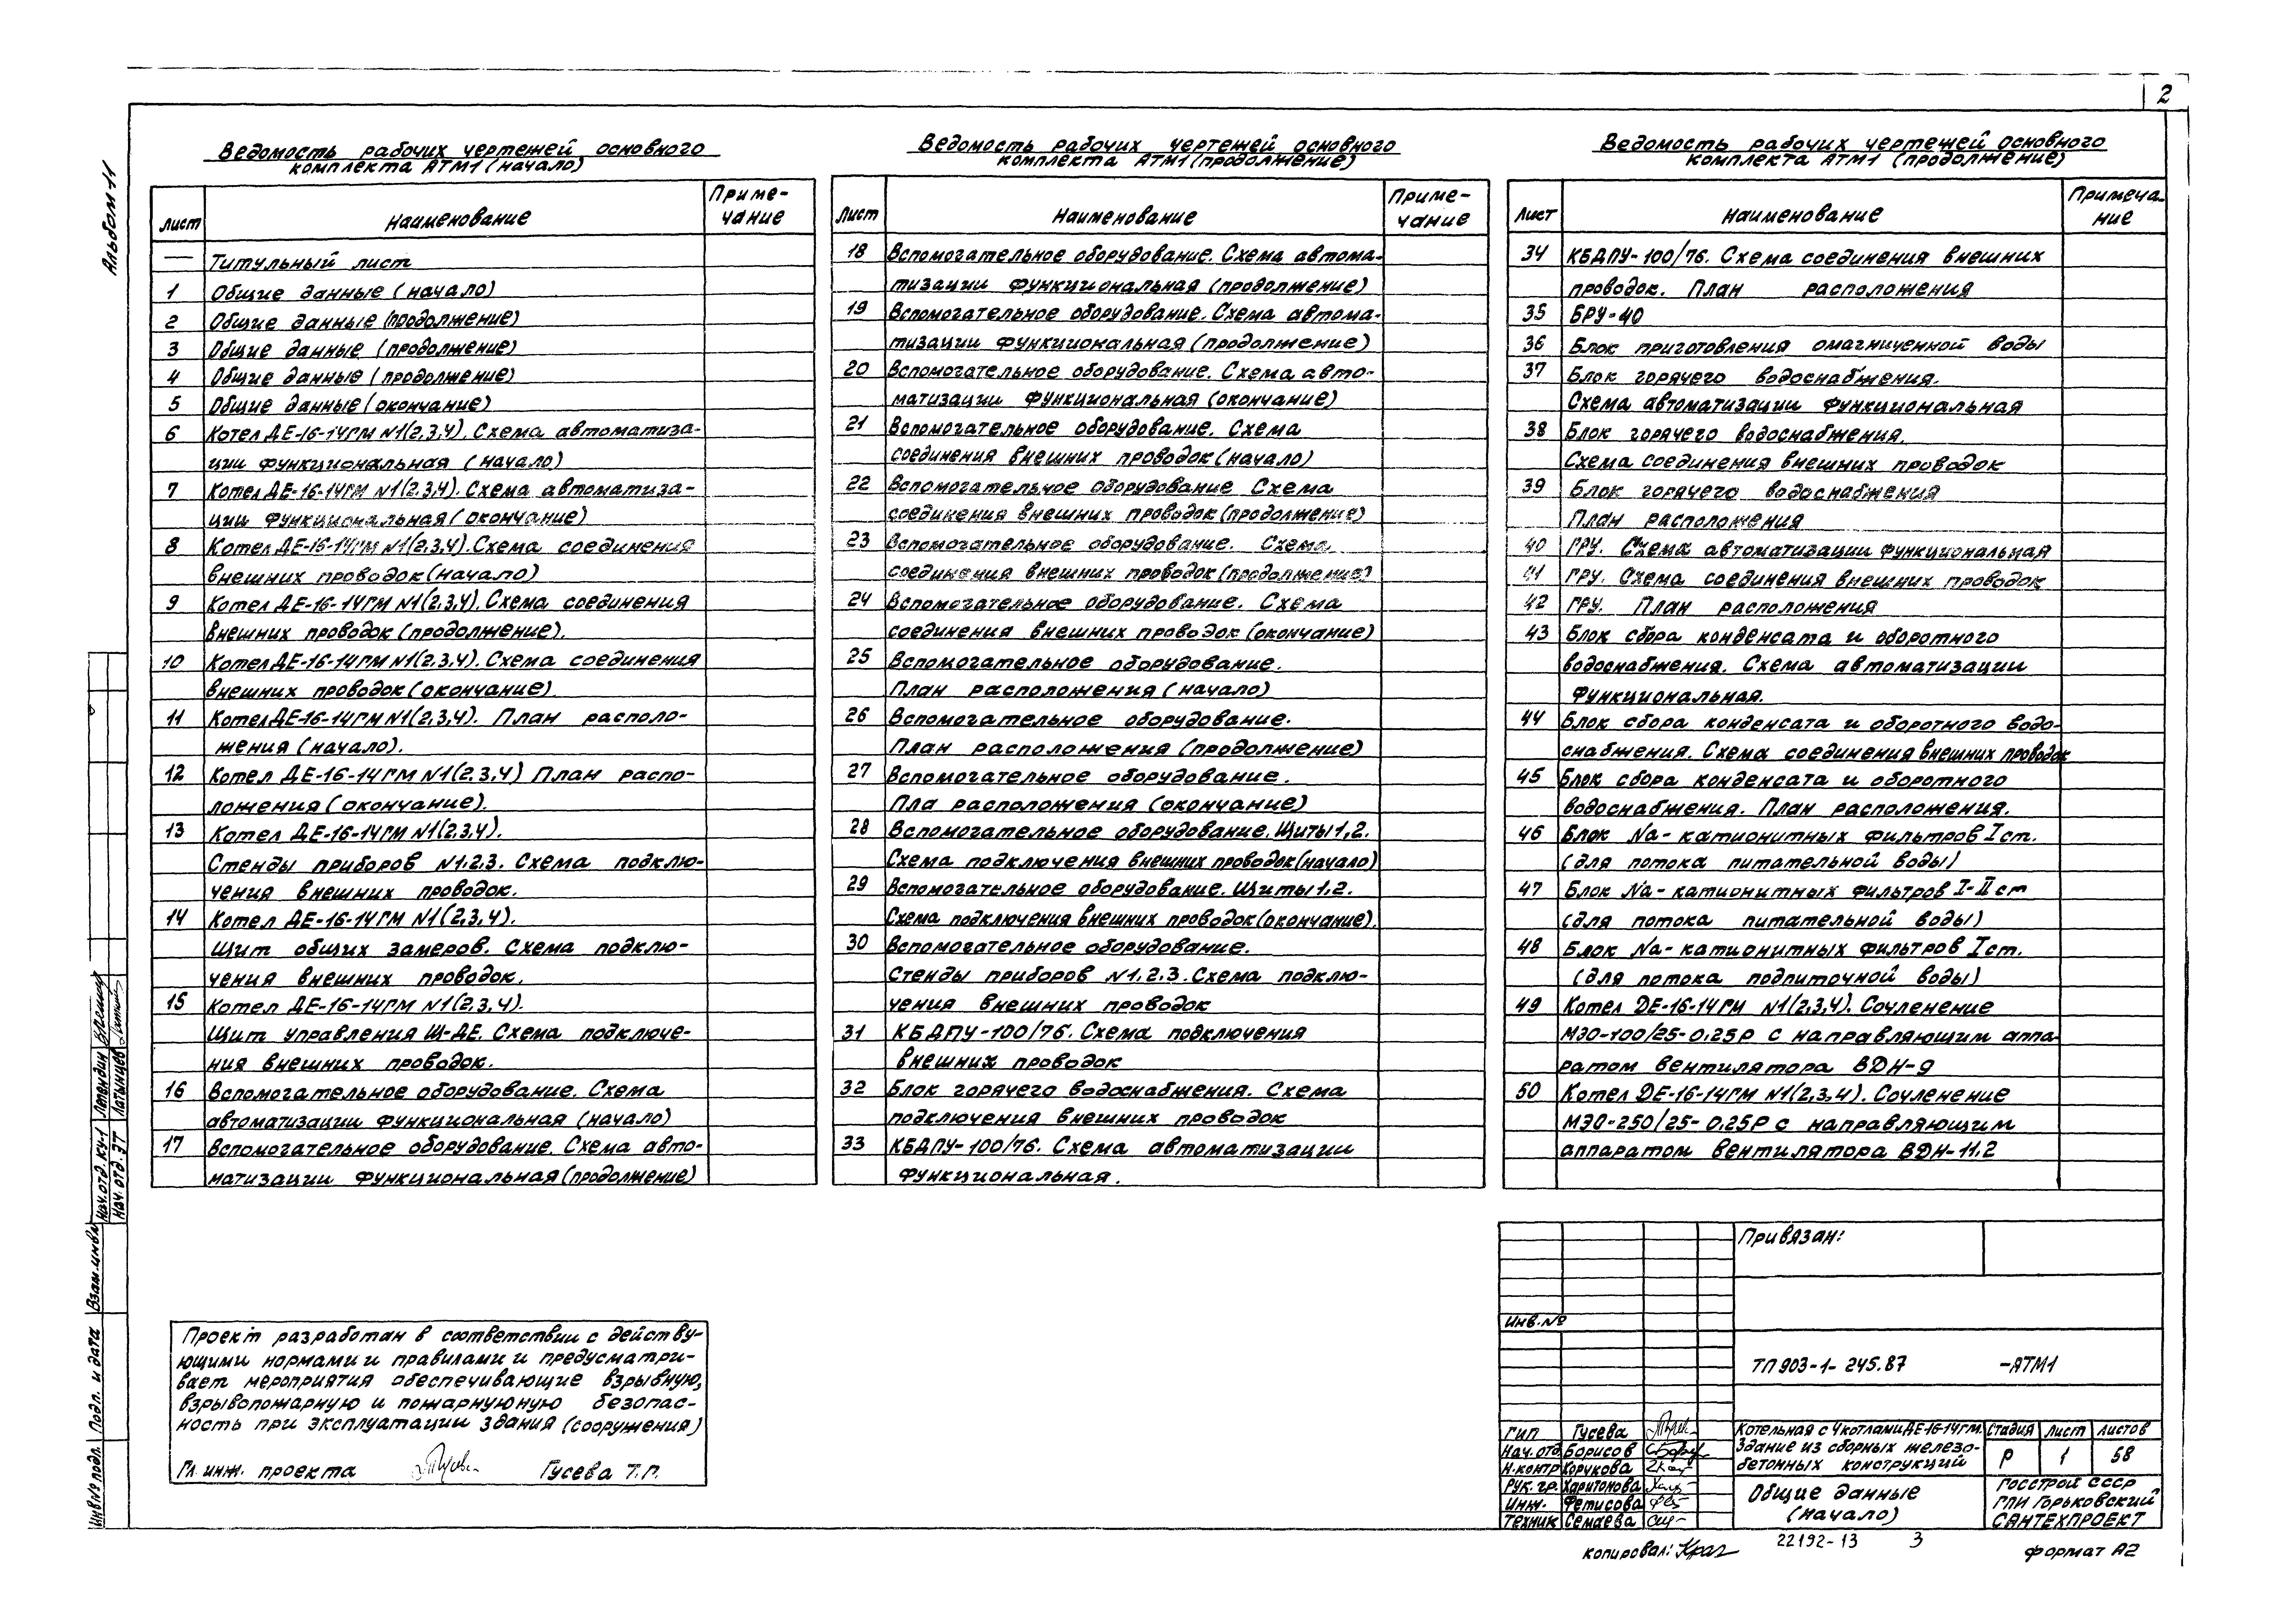 2
Альбом 11
Ведомость рабочих чертежей основного
комплекта АТМ1 (начало)
Лист
Наименование
Приме-
чание
— Титульный лист
1 Общие данные (начало)
2 Общие данные (продолжение)
3 Общие данные (продолжение)
4 Общие данные (продолжение)
5 Общие данные (окончание)
6 Котел ДЕ-16-14ГМ №1(2,3,4). Схема автоматиза-
ции функциональная (начало)
7 Котел ДЕ-16-14ГМ №1(2,3,4). Схема автоматиза-
ции функциональная (окончание)
8 Котел ДЕ-16-14ГМ №1(2,3,4). Схема соединения
внешних проводок (начало)
9 Котел ДЕ-16-14ГМ №1(2,3,4). Схема соединения
внешних проводок (продолжение).
10 Котел ДЕ-16-14ГМ №1(2,3,4). Схема соединения
внешних проводок (окончание)
11 Котел ДЕ-16-14ГМ №1(2,3,4). План располо-
жения (начало).
12 Котел ДЕ-16-14ГМ №1(2,3,4) План распо-
ложения (окончание).
13 Котел ДЕ-16-14ГМ №1(2,3,4).
Стенды приборов №1,2,3. Схема подклю-
чения внешних проводок.
14 Котел ДЕ-16-14ГМ №1(2,3,4).
Щит общих замеров. Схема подклю-
чения внешних проводок.
15 Котел ДЕ-16-14ГМ №1(2,3,4).
Щит управления Щ-ДЕ. Схема подключе-
ния внешних проводок.
16 Вспомогательное оборудование. Схема
автоматизации функциональная (начало)
17 Вспомогательное оборудование. Схема авто-
матизации функциональная (продолжение)
Ведомость рабочих чертежей основного
комплекта АТМ1 (продолжение)
Лист
Наименование
Приме-
чание
18 Вспомогательное оборудование. Схема автома-
тизации функциональная (продолжение)
19 Вспомогательное оборудование. Схема автома-
тизации функциональная (продолжение)
20 Вспомогательное оборудование. Схема авто-
матизации функциональная (окончание)
21 Вспомогательное оборудование. Схема
соединения внешних проводок (начало)
22 Вспомогательное оборудование Схема
соединения внешних проводок (продолжение)
23 Вспомогательное оборудование. Схема
соединения внешних проводок (продолжение)
24 Вспомогательное оборудование. Схема
соединения внешних проводок (окончание)
25 Вспомогательное оборудование.
План расположения (начало)
26 Вспомогательное оборудование.
План расположения (продолжение)
27 Вспомогательное оборудование.
Пла расположения (окончание)
28 Вспомогательное оборудование. Щиты 1,2.
Схема подключения внешних проводок (начало)
29 Вспомогательное оборудование. Щиты 1,2.
Схема подключения внешних проводок (окончание).
30 Вспомогательное оборудование.
Стенды приборов №1,2,3. Схема подклю-
чения внешних проводок
31 КБДПУ-100/76. Схема подключения
внешних проводок
32 Блок горячего водоснабжения. Схема
подключения внешних проводок
33 КБДПУ-100/76. Схема автоматизации
функциональная.
Ведомость рабочих чертежей основного
комплекта АТМ1 (продолжение)
Лист
Наименование
Примеча-
ние
34 КБДПУ-100/76. Схема соединения внешних
проводок. План расположения
35 БРУ-40
36 Блок приготовления омагниченной воды
37 Блок горячего водоснабжения.
Схема автоматизации функциональная
38 Блок горячего водоснабжения.
Схема соединения внешних проводок
39 Блок горячего водоснабжения
План расположения
40 ГРУ. Схема автоматизации функциональная
41 ГРУ. Схема соединения внешних проводок
42 ГРУ. План расположения
43 Блок сбора конденсата и оборотного
водоснабжения. Схема автоматизации
функциональная.
44 Блок сбора конденсата и оборотного водо-
снабжения. Схема соединения внешних проводок
45 Блок сбора конденсата и оборотного
водоснабжения. План расположения.
46 Блок Na-катионитных фильтров I ст.
(для потока питательной воды)
47 Блок Na-катионитных фильтров I-II ст
(для потока питательной воды)
48 Блок Na-катионитных фильтров I ст.
(для потока подпиточной воды)
49 Котел ДЕ-16-14ГМ №1(2,3,4). Сочленение
МЭО-100/25-0,25Р с направляющим аппа-
ратом вентилятора ВДН-9
50 Котел ДЕ-16-14ГМ №1(2,3,4). Сочленение
МЭО-250/25-0,25Р с направляющим
аппаратом вентилятора ВДН-11,2
Проект разработан в соответствии с действу-
ющими нормами и правилами и предусматри-
вает мероприятия обеспечивающие взрывную,
взрывопожарную и пожарнуюную безопас-
ность при эксплуатации здания (сооружения)
Гл. инж. проекта Гусева Т.Г.
Привязан:
Инв. №
ТП 903-1-245.87 -АТМ1
ГИП Гусева
Нач. отд. Борисов
Н. контр Корчкова
Рук. гр. Харитонова
Инж. Фетисова
Техник Семаева
Котельная с 4 котлами ДЕ-16-14ГМ.
Здание из сборных железо-
бетонных конструкций
Стадия Лист Листов
Р 1 58
Общие данные
(начало)
Госстрой СССР
ГПИ Горьковский
САНТЕХПРОЕКТ
Копировал: 22192-13 3 Формат А2
Нач. отд. КУ-1 Лепендин
Нач. отд. ЭТ Латынцев
Взам. инв №
Подп. и дата
Инв № подл.